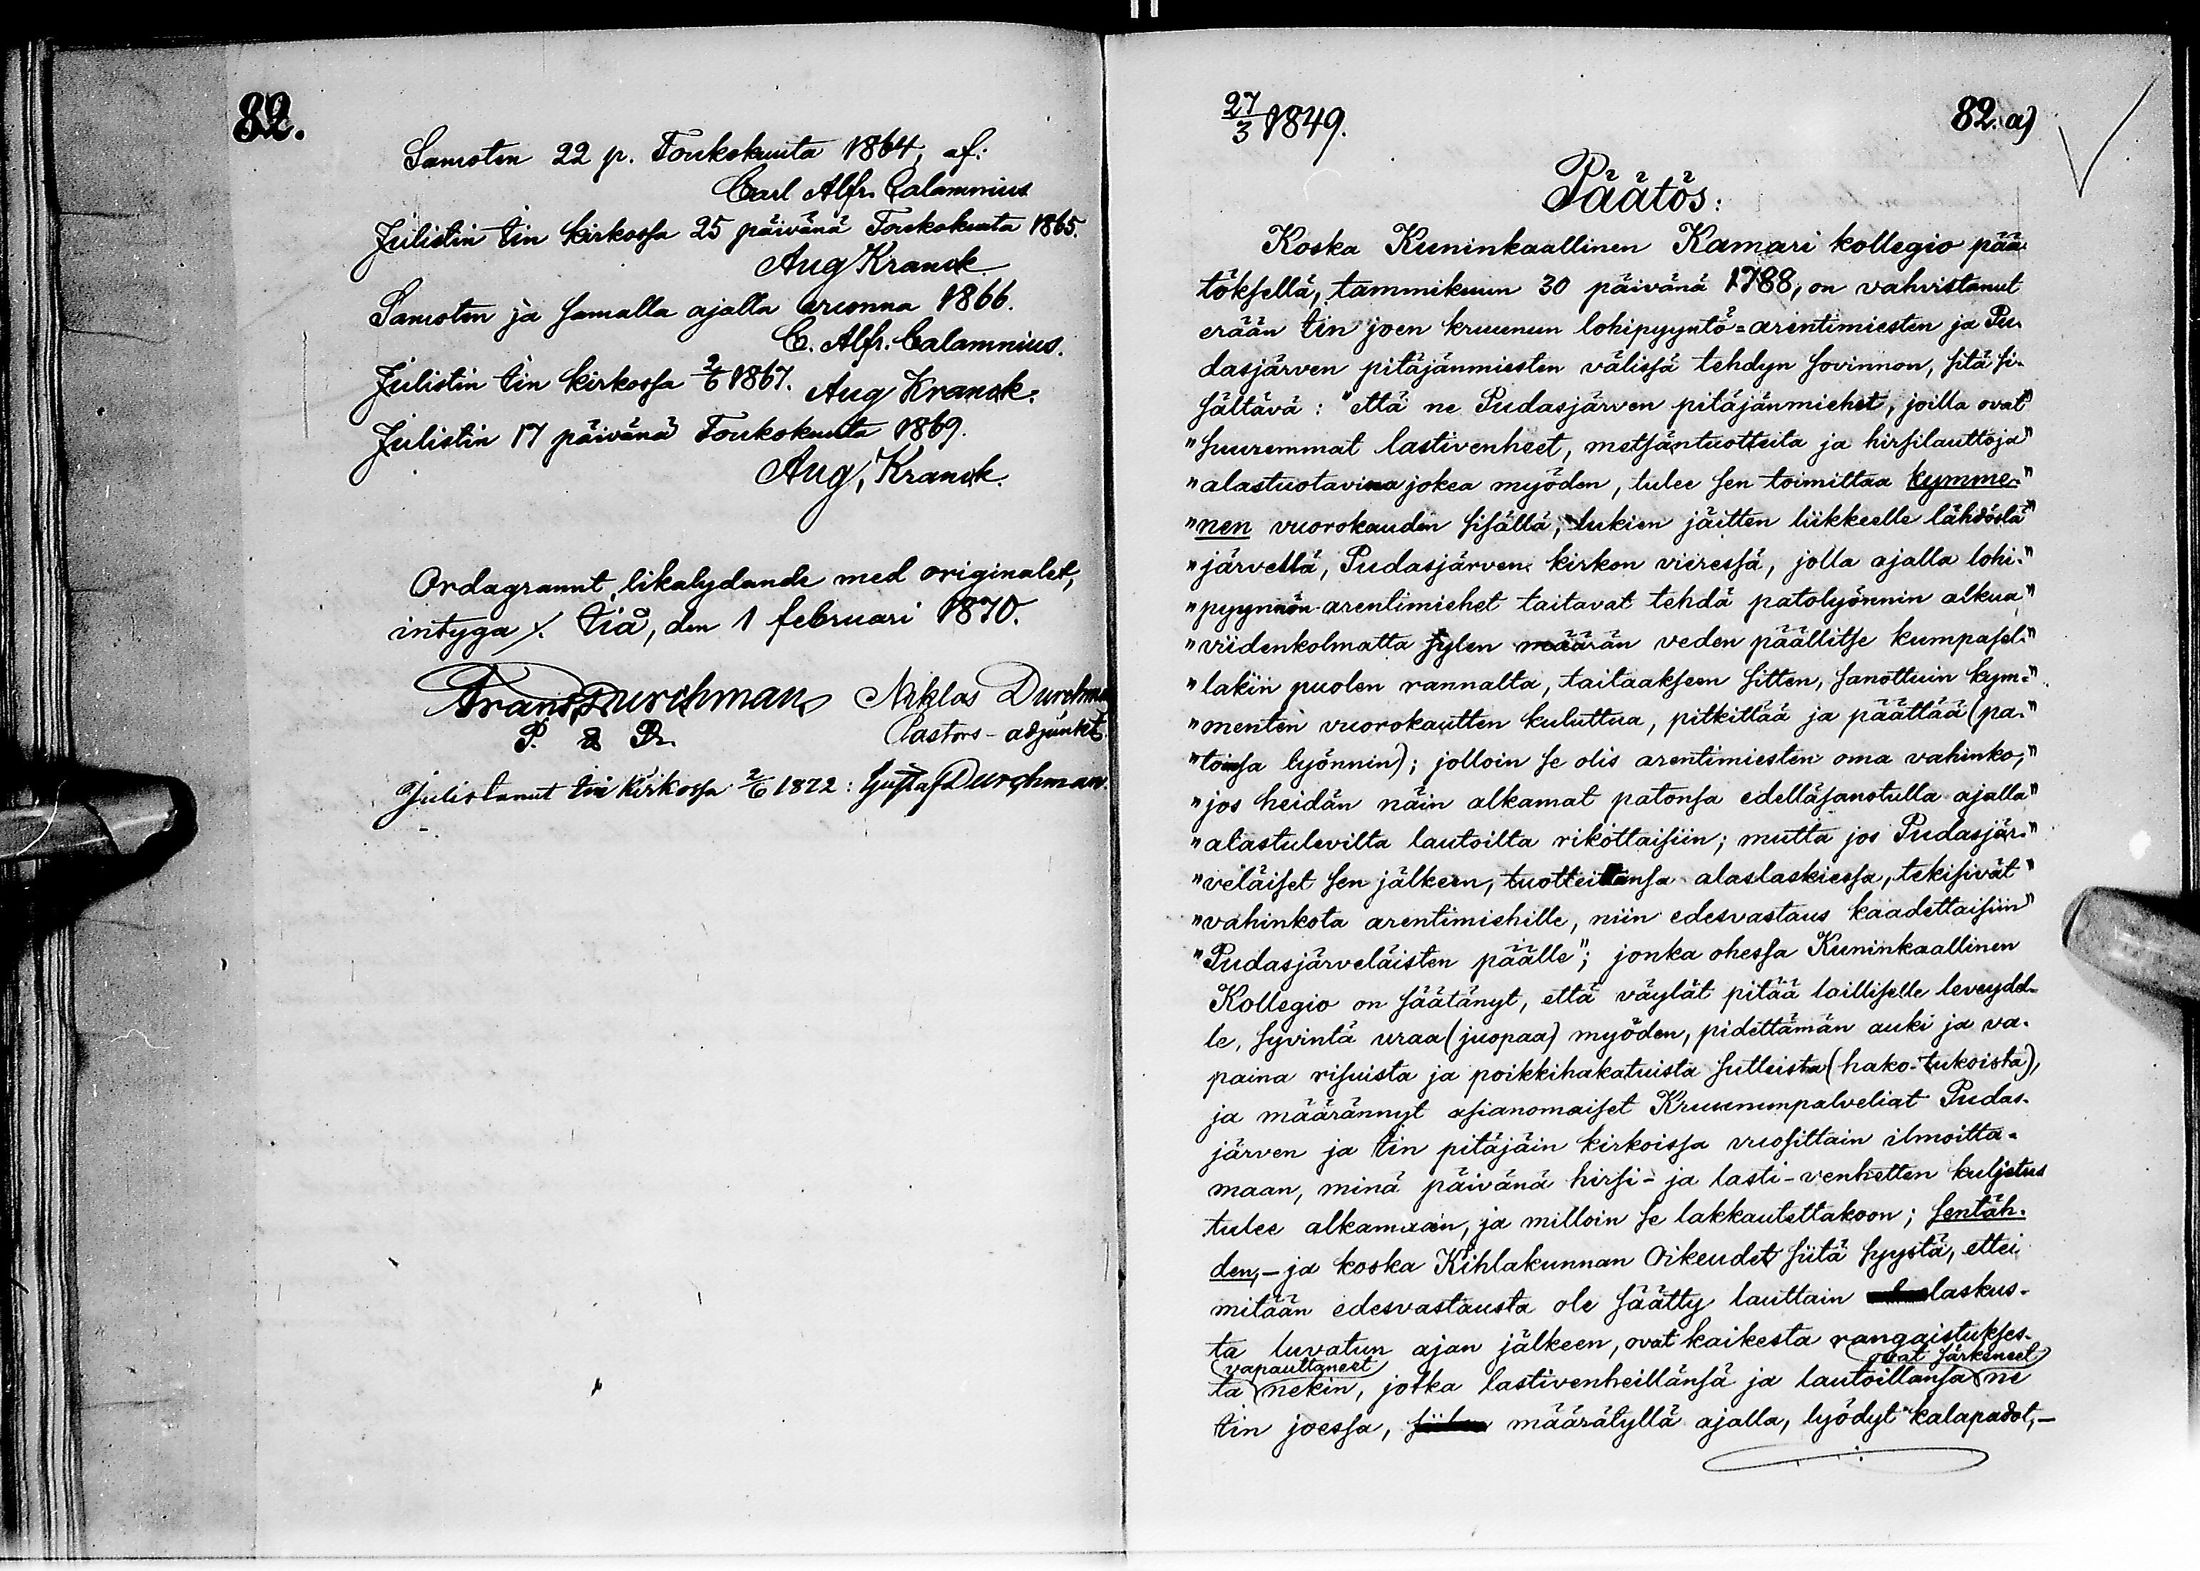 82.
Samoten 22 p. Toukokuuta 1864, af:
Carl Alfr. Calamnius
Julistin Iin kirkossa 25 päivänä Toukokuuta 1865.
Aug Kranck
Samoten ja samalla ajalla vuonna 1866.
C. Alfr. Calamnius.
Julistin Iin kirkossa 2/6 1867. Aug Kranck.
Julistin 17 päivänä Toukokuuta 1869.
Aug, Kranck.
Ordagrannt likalydande med originalet,
intyga ⁒ Iiå, den 1 februari 1870.
Frans Durchman Niklas Durchman
P. & Pr. Pastors-adjunkt.
Julistanut Iin Kirkossa 2/6 1872: Gustaf Durchman.
27/3 1849.
82. a)
Päätös:
Koska Kuninkaallinen Kamari kollegio pää-
töksellä, tammikuun 30 päivänä 1788, on vahvistanut
erään Iin joen kruunun lohipyyntö=arentimiesten ja Pu-
dasjärven pitäjänmiesten välissä tehdyn sovinnon, sitä si-
sältävä: "että ne Pudasjärven pitäjänmiehet, joilla ovat"
"suuremmat lastivenheet, metsäntuotteita ja hirsilauttoja"
"alastuotavina jokea myöden, tulee sen toimittaa kymme-"
"nen vuorokauden sisällä, lukien jäitten liikkeelle lähdöstä"
"järvestä, Pudasjärven kirkon vieressä, jolla ajalla lohi-"
"pyynnön-arentimiehet taitavat tehdä patolyönnin alkua"
"viidenkolmatta sylen määrän veden päällitse kumpasel-"
"lakin puolen rannalta, taitaakseen sitten, sanottuin kym-"
"menten vuorokautten kuluttua, pitkittää ja päättää (pa-"
"toinsa lyönnin); jolloin se olis arentimiesten oma vahinko,"
"jos heidän näin alkamat patonsa edelläsanotulla ajalla"
"alastulevilta lautoilta rikottaisiin; mutta jos Pudasjär-"
"veläiset sen jälkeen, tuotteitansa alaslaskiessa, tekisivät"
"vahinkota arentimiehille, niin edesvastaus kaadettaisiin"
"Pudasjärveläisten päälle"; jonka ohessa Kuninkaallinen
Kollegio on säätänyt, että väylät pitää lailliselle leveydel-
le, syvintä uraa (juopaa) myöden, pidettämän auki ja va-
paina risuista ja poikkihakatuista sutteista (hako-tukoista),
ja määrännyt asianomaiset Kruununpalveliat Pudas-
järven ja Iin pitäjäin kirkoissa vuosittain ilmoitta-
maan, minä päivänä hirsi- ja lasti-venhetten kuljetus
tulee alkamaan, ja milloin se lakkautettakoon; sentäh-
den,- ja koska Kihlakunnan Oikeudet siitä syystä, ettei
mitään edesvastausta ole säätty lauttain laskus-
ta luvatun ajan jälkeen, ovat kaikesta rangaistukses-
vapauttaneet ovat särkeneet
ta nekin, jotka lastivenheillänsä ja lautoillansa ne
Iin joessa, määrätyllä ajalla, lyödyt kalapadot,-